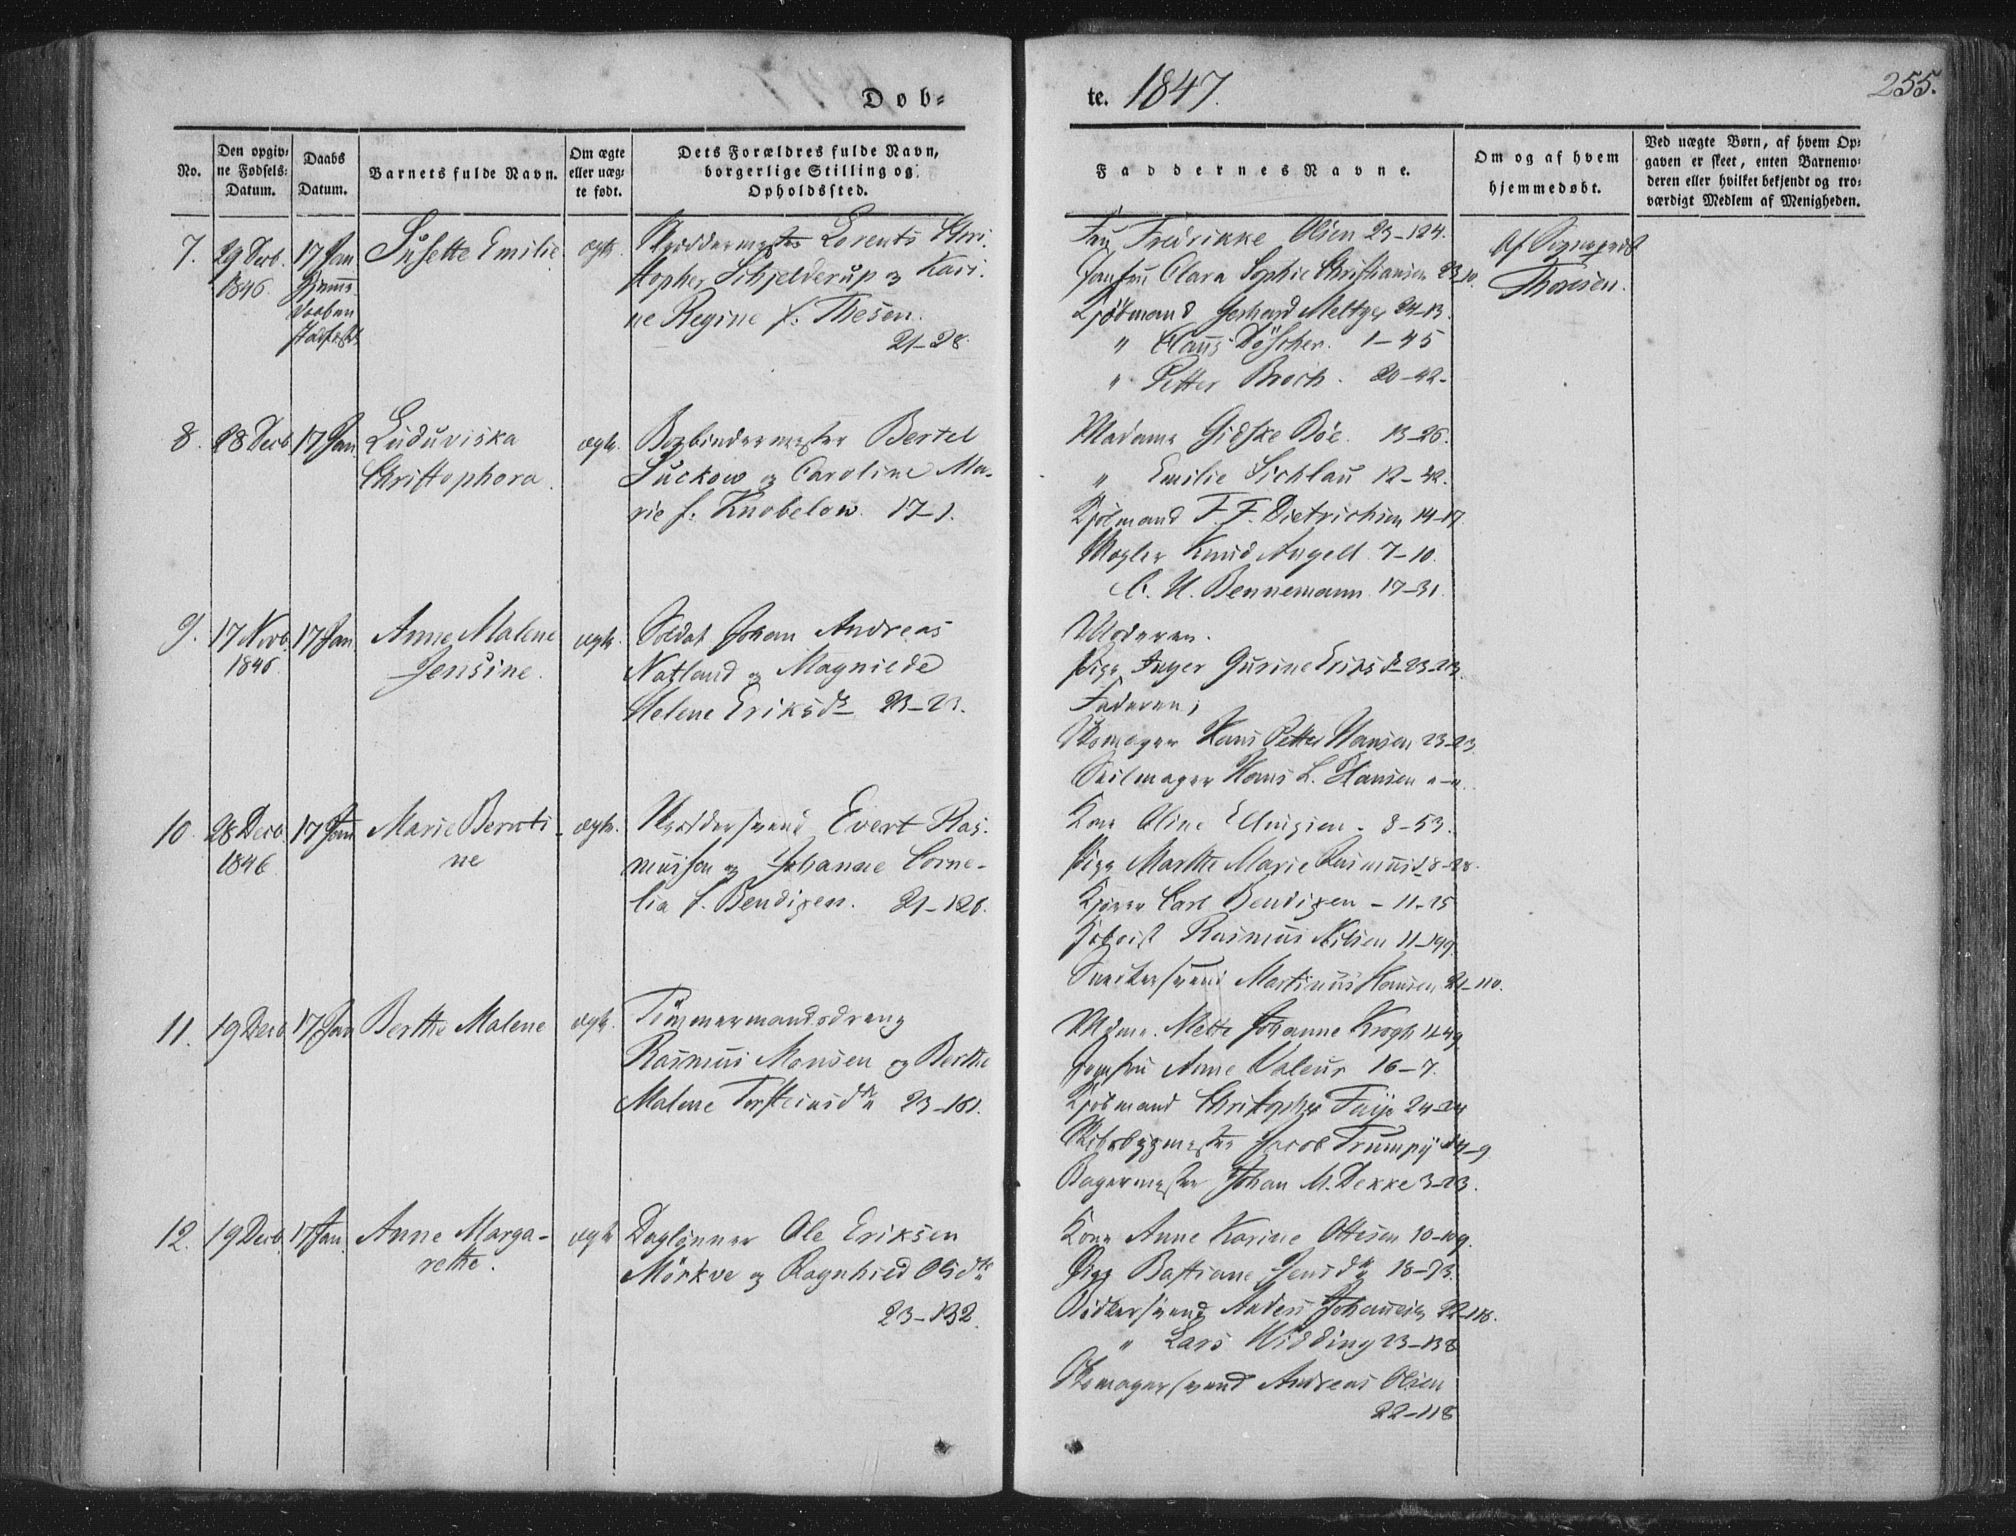 Døb-
te. 1847.
255.
No.
Den opgiv-
ne Fødsels-
Datum.
Daabs
Datum.
Barnets fulde Navn.
Om ægte
eller uæg-
te født.
Dets Forældres fulde Navn,
borgerlige Stilling og
Opholdssted.
Faddernes Navne.
Om og af hvem
hjemmedøbt.
Ved uægte Børn, af hvem Op-
gaven er skeet, enten Barnemo-
deren eller hvilket bekjendt og tro-
værdigt Medlem af Menigheden.
7. 29 Decb. 1846 17 Jan Susette Emilie ægte
Lorents Chri-
stopher Schjelderup og Kari-
ne Regine f. Thesen.
21-28
Fru Fredrikke Olsen 23-124.
Jomfru Clara Sophie Christiansen
Kjøbmand Gerhard Meltzer 24-13.
" Claus Döscher. 1-45
" Petter Broch. 20-42.
Af
Thoresen.
8. 28 Decb 17 Jan Luduviska
Christophora.
ægte.
Bogbindermester Bertel
Suckow og Caroline Ma-
rie f. Knobelow. 17-1.
Madame Gidske Böe. 13-26.
" Emilie Sichlau 12-42.
Kjøbmand F. F. Dietrichsen 14-17.
Mægler Knud Angell 7-10.
C. U. Bennemann 17-31.
9. 17 Novb 1846 17 Jan Anne Malene
Jensine.
ægte.
Soldat Johan Andreas
Natland og Magnilde
Helene Eriksdr 23-23.
Moderen.
Pige Inger Gurine Eriksdr 23-23.
Faderen,
Skomager Hans Petter Hansen 23-23
Seilmager Hans L. Hansen "-"
10. 28 Decb 1846 17 Jan Marie Bernti-
ne
ægte.
Skræddersvend Evert Ras-
mussen og Johanne Corne-
lia f. Bendixen. 21-126.
Kone Oline 3-53.
Pige Marthe Marie Rasmusd 8-28.
Kjører Carl Bendixen - 11-15
Rasmus Nilsen 11-199.
Snedkersvend Martinus Hansen 21-110.
11. 19 Decb 17 Jan Berthe Malene ægte.
Tømmermandsdreng
Rasmus Monsen og Berthe
Malene Torsteinsdr 23-161.
Mette Johanne Krogh
Jomfru Anne Valeur 16-7.
Kjøbmand Christopher Faye 24-24
Skibsbygmester Jacob Trumpy 24-9
Bagermester Johan M. Dekke 3-23.
12. 19 Decb. 17 Jan. Anne Marga-
rethe.
ægte
Daglønner Ole Eriksen
Mörkve og Ragnhild Olsdtr
23-132.
Kone Anne Karine Ottesen 10-109.
Pige Bastiane Jensdtr 18-73.
Bødkersvend Anders Johannesen 22-118.
" Lars Widding 23-138
Skomagersvend Andreas Olsen
22-118